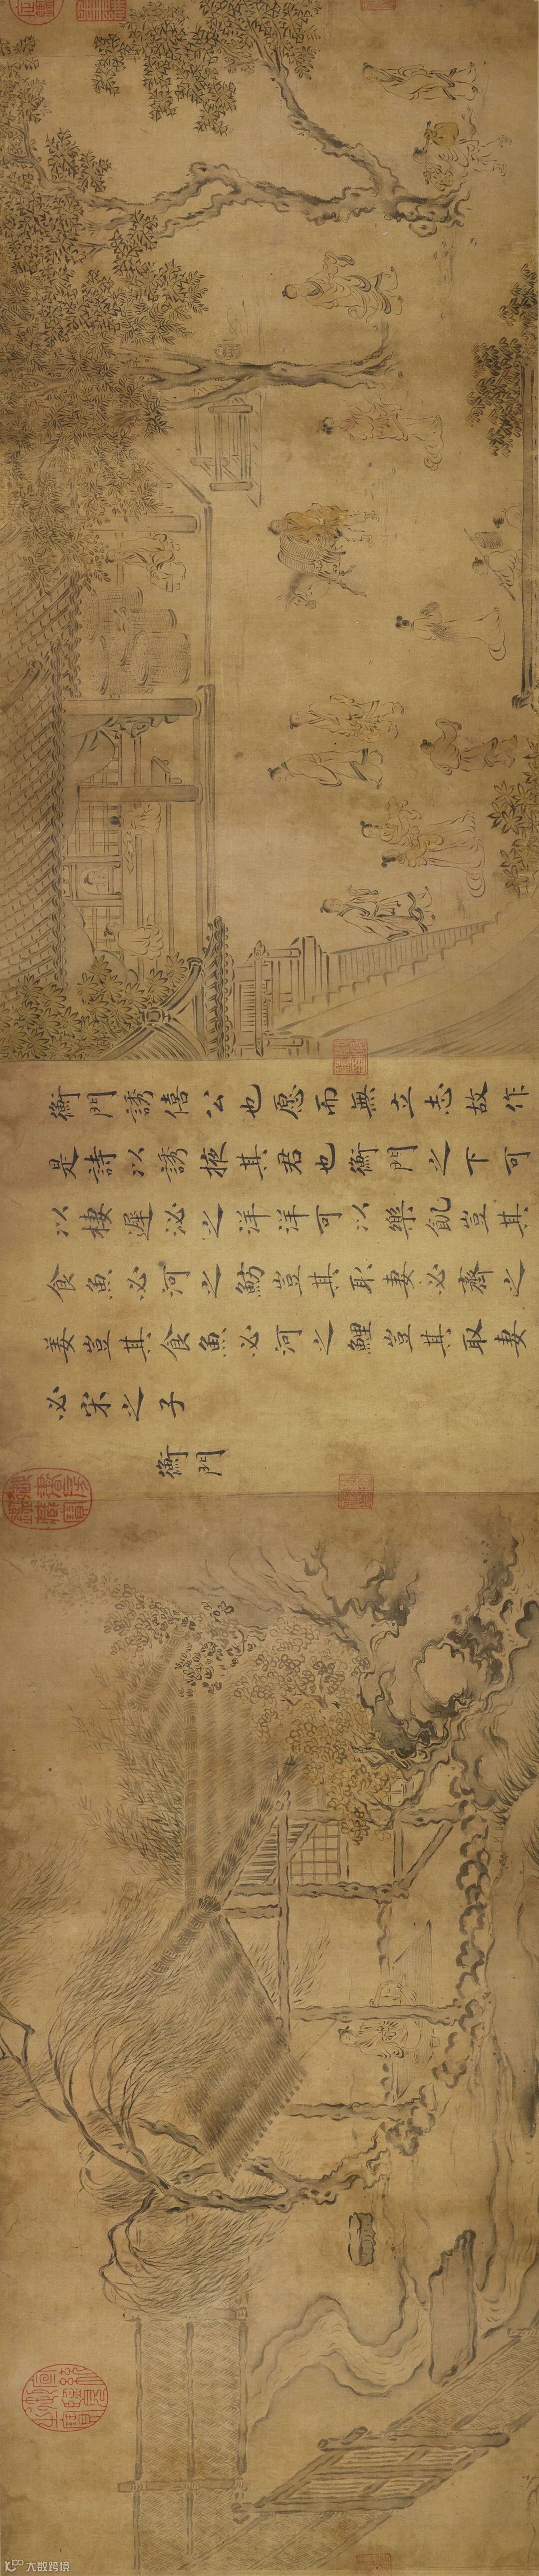 衡門誘僖公也愿而無立志故作
是詩以誘掖其君也衡門之下可
以棲遲泌之洋洋可以樂飢豈其
食魚必河之魴豈其取妻必齊之
姜豈其食魚必河之鯉豈其取妻
必宋之子
衡門
大数跨境